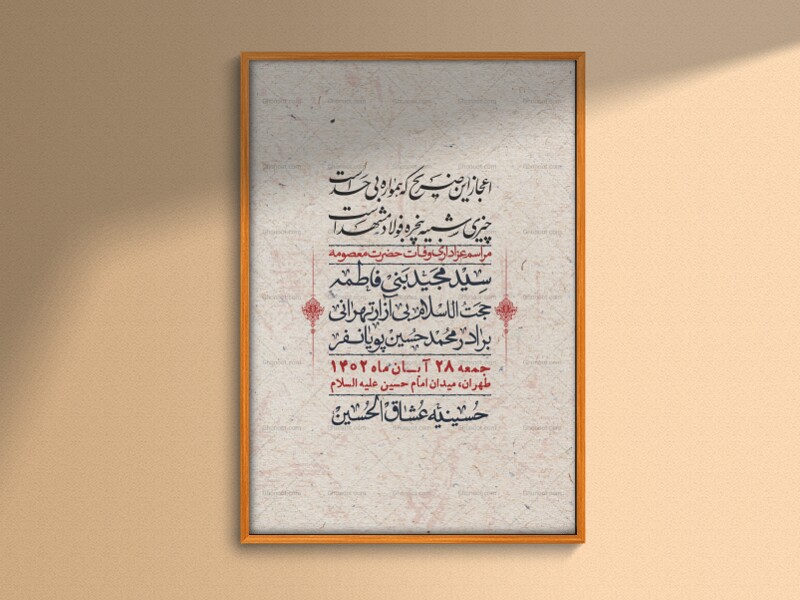 اعجاز این ضریح که همواره بی حد است
چیزی شبیه پنجره فولاد مشهد است
مراسم عزاداری وفات حضرت معصومه
سید مجید بنی فاطمه
حجت الاسلام بی آزار تهرانی
برادر محمد حسین پویانفر
جمعه ۲۸ آبان ماه ۱۴۰۲
طهران، میدان امام حسین علیه السلام
حسینیه عشاق الحسین